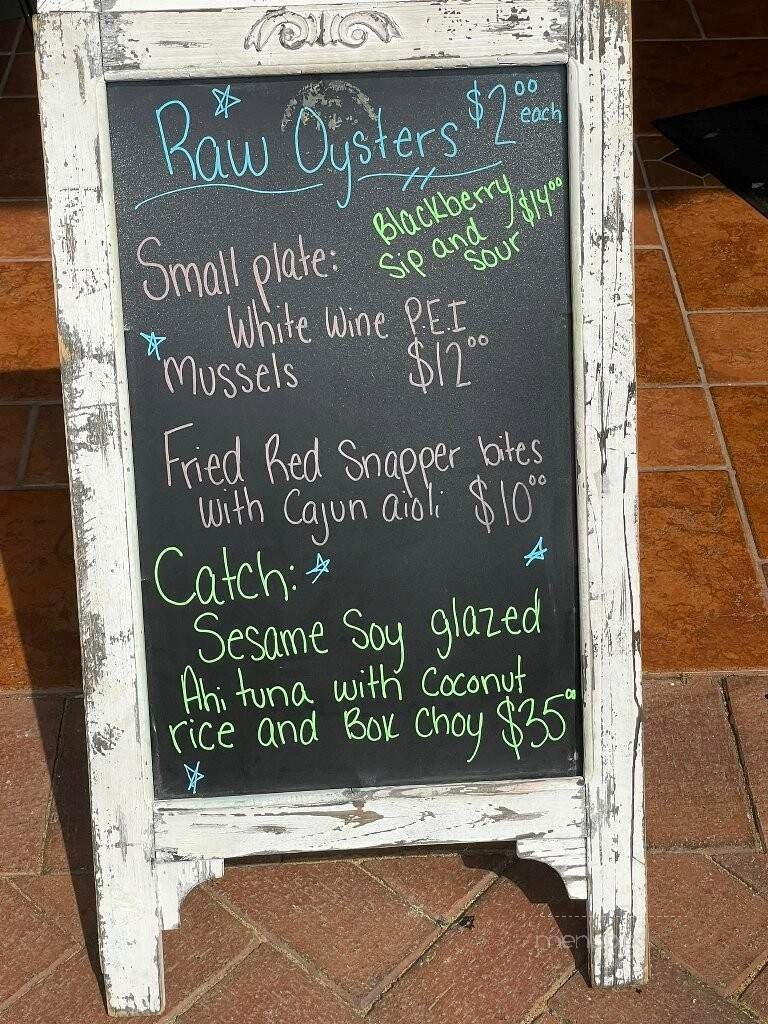 Raw Oysters $2.00 each
Blackberry
Sip and
Sour $14.00
Small plate:
White Wine P.E.I
Mussels $12.00
Fried Red Snapper bites
with Cajun aioli $10.00
Catch:
Sesame Soy glazed
Ahi tuna with Coconut
rice and Bok Choy $35.00